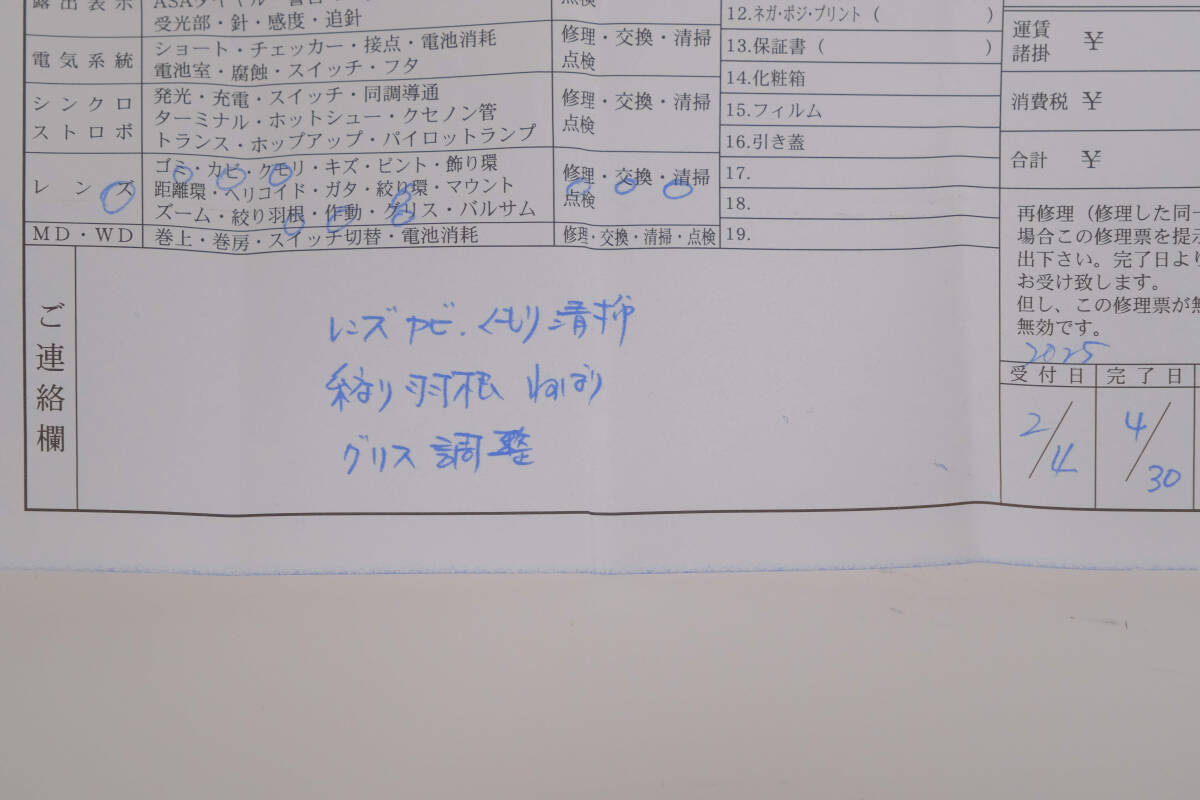 露出表示
受光部・針・感度・追針
点検
電気系統
ショート・チェッカー・接点・電池消耗
電池室・腐蝕・スイッチ・フタ
修理・交換・清掃
点検
シンクロ
ストロボ
発光・充電・スイッチ・同調導通
ターミナル・ホットシュー・クセノン管
トランス・ホップアップ・パイロットランプ
修理・交換・清掃
点検
レンズ
ゴミ・カビ・クモリ・キズ・ピント・飾り環
距離環・ヘリコイド・ガタ・絞り環・マウント
ズーム・絞り羽根・作動・グリス・バルサム
修理・交換・清掃
点検
MD・WD
巻上・巻房・スイッチ切替・電池消耗
修理・交換・清掃・点検
12.ネガ・ポジ・プリント ( )
13.保証書 ( )
14.化粧箱
15.フィルム
16.引き蓋
17.
18.
19.
運賃
諸掛 ¥
消費税 ¥
合計 ¥
再修理（修理した同一
場合この修理票を提示
出下さい。完了日より
お受け致します。
但し、この修理票が無
無効です。
2025
受付日 完了日
2/4 4/30
ご連絡欄
レンズカビ・くもり清掃
絞り羽根 ねばり
グリス調整